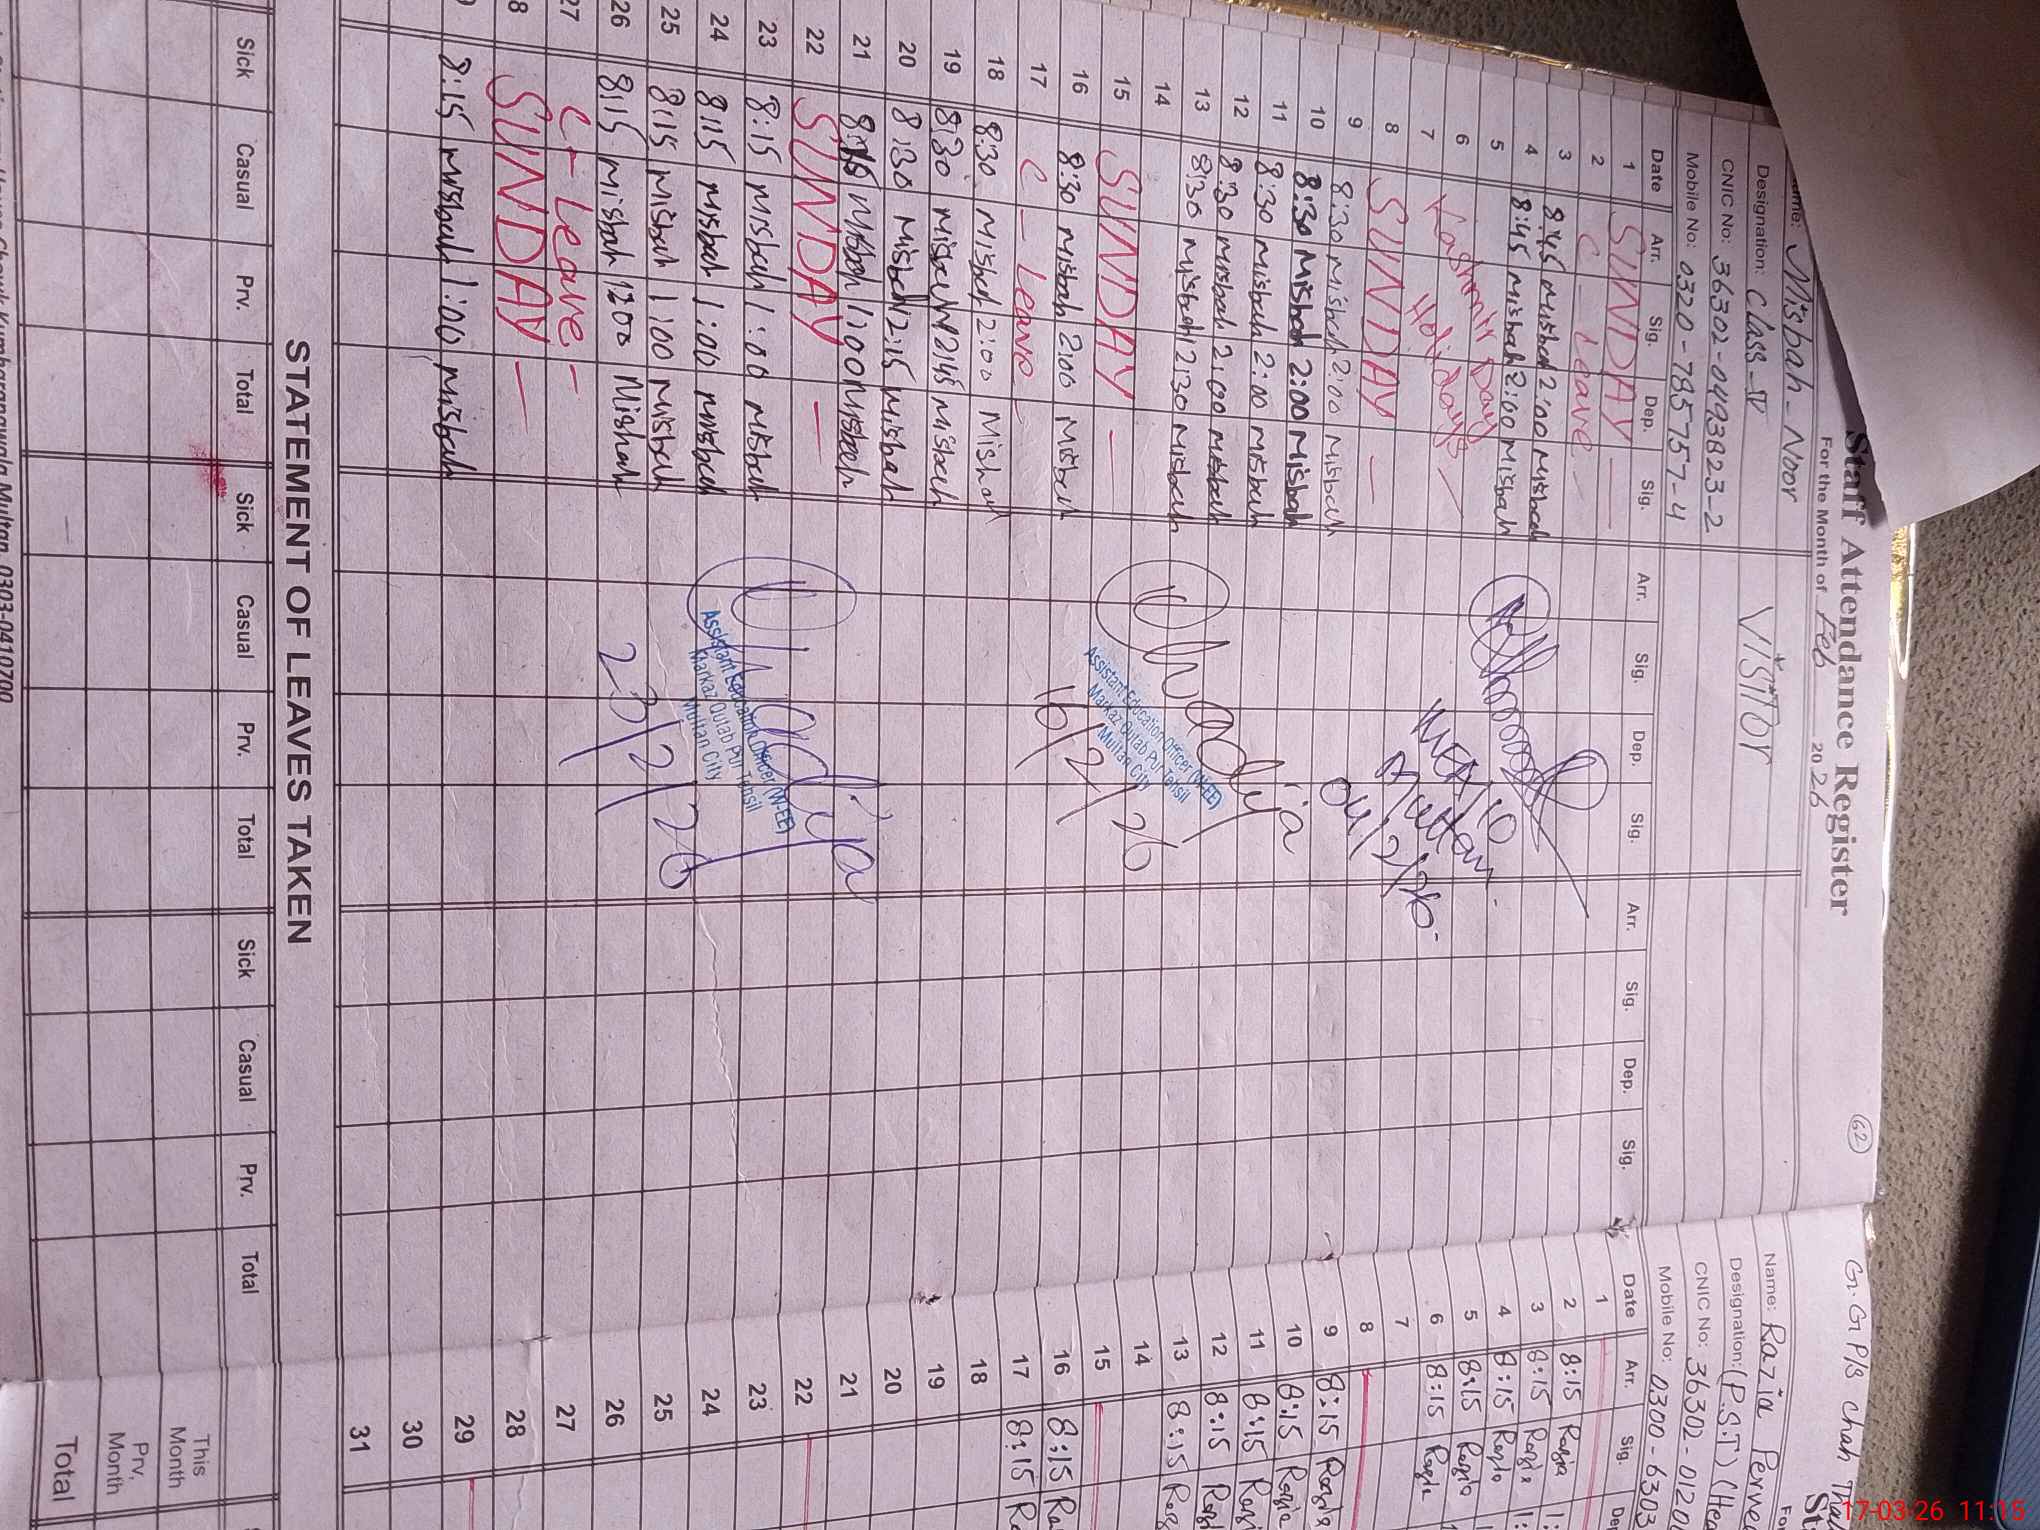 Staff Attendance Register
For the Month of Feb 2026
62
Misbah - Noor
VISITOr
Designation: Class-IV
CNIC No: 36302-0493823-2
Mobile No: 0320-7857157-4
Date Arr. Sig. Dep. Sig. Arr. Sig. Dep. Sig. Arr. Sig. Dep. Sig.
1 SUNDAY
2 C - Leave -
3 8:45 Misbah 2:00 Misbah
4 8:45 Misbah 2:00 Misbah
5 Kashmir Day
6 Holidays
7
8 SUNDAY
9 8:30 Misbah 2:00 Misbah
10 8:30 Misbah 2:00 Misbah
11 8:30 Misbah 2:00 Misbah
12 8:30 Misbah 2:00 Misbah
13 8:30 Misbah 12:30 Misbah
14
15 SUNDAY
16 8:30 Misbah 2:00 Misbah
17 C - Leave
18 8:30 Misbah 2:00 Misbah
19 8:30 Misbah 12:45 Misbah
20 8:30 Misbah 12:15 Misbah
21 8:15 Misbah 1:00 Misbah
22 SUNDAY
23 8:15 Misbah 1:00 Misbah
24 8:15 Misbah 1:00 Misbah
25 8:15 Misbah 1:00 Misbah
26 8:15 Misbah 1200 Misbah
27 C - Leave -
8 SUNDAY
8:15 Misbah 1:00 Misbah
04/2/26
Assistant Education Officer (W-EE)
Markaz Qutab Pur Tehsil
Multan City
16/2/26
Assistant Education Officer (W-EE)
Markaz Qutab Pur Tehsil
Multan City
23/2/26
STATEMENT OF LEAVES TAKEN
Sick Casual Prv. Total Sick Casual Prv. Total Sick Casual Prv. Total
Multan 0303-0410700
G.G P/S Chah
Name: Razia Perveen
Designation: (P.S.T)
CNIC No: 36302-0120
Mobile No: 0300-6303
Date Arr. Sig.
1
2 8:15 Razia
3 8:15 Razia
4 8:15 Razia
5 8:15 Razia
6 8:15 Razia
7
8
9 8:15 Razia
10 8:15 Razia
11 8:15 Razia
12 8:15 Razia
13 8:15
14
15
16 8:15
17 8:15
18
19
20
21
22
23
24
25
26
27
28
29
30
31
This Month
Prv, Month
Total
17-03-26 11:15